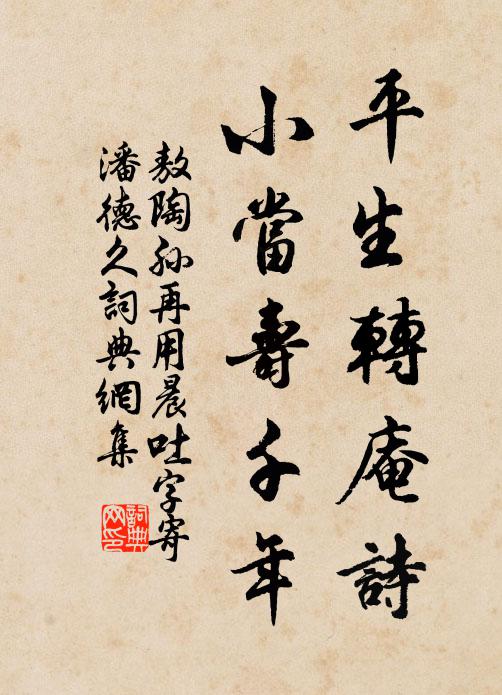 平生轉庵詩
小當壽千年
敖陶孙再用晨吐字寄
潘德久詞典網集
詞典网印